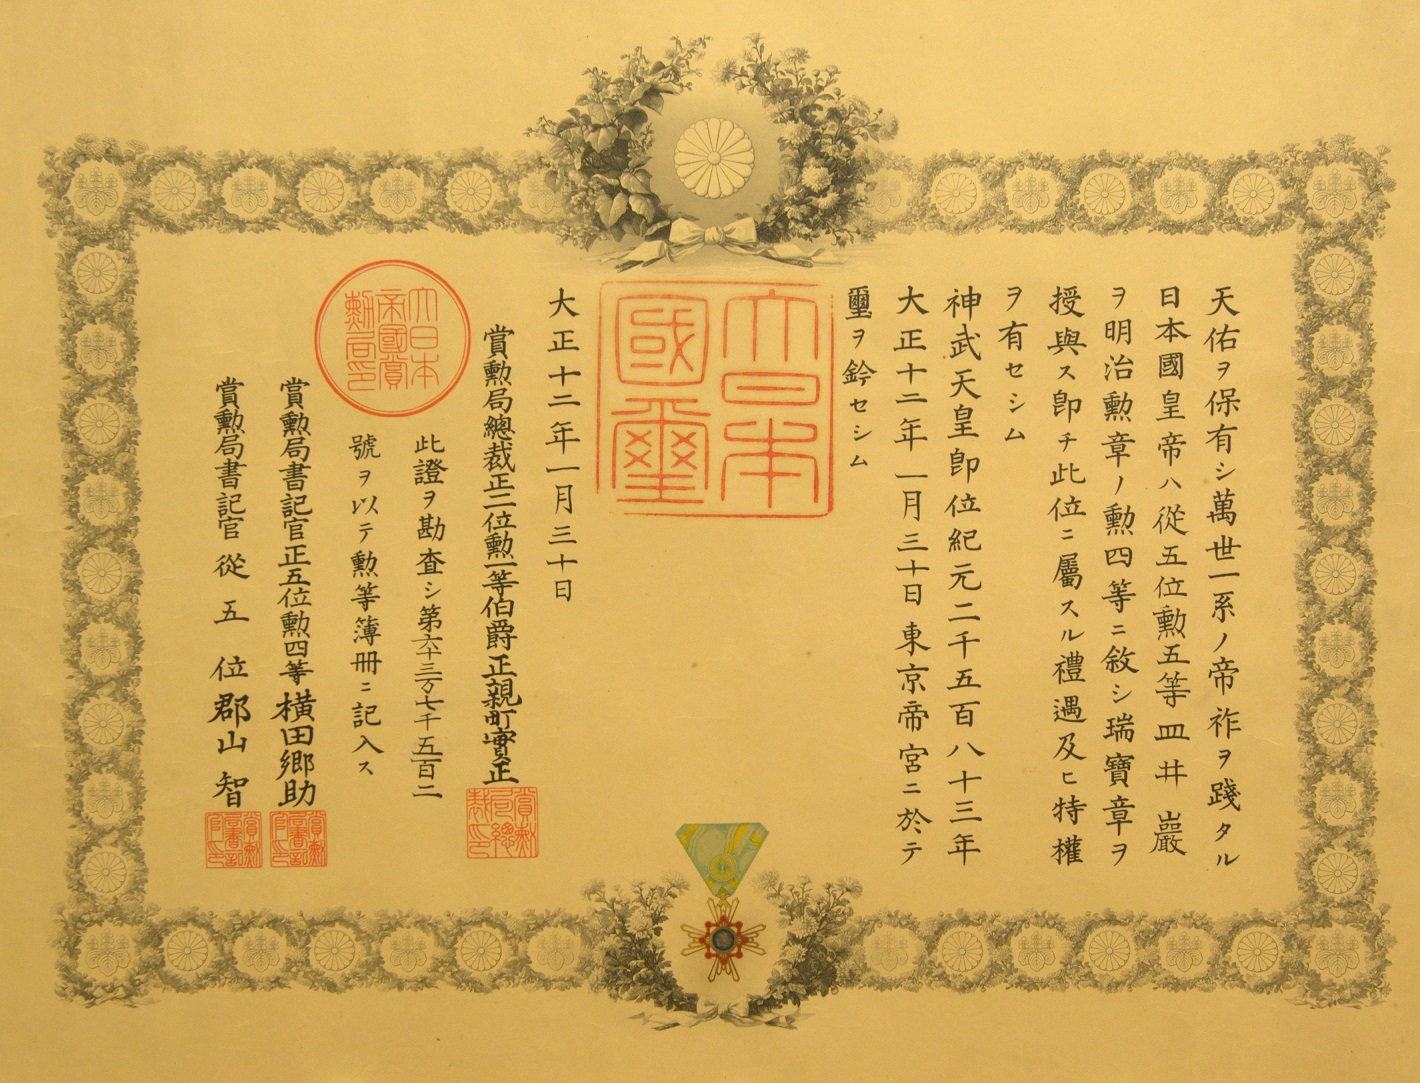 天佑ヲ保有シ萬世一系ノ帝祚ヲ踐タル
日本國皇帝ハ從五位勲五等皿井巖
ヲ明治勲章ノ勲四等ニ敘シ瑞寶章ヲ
授與ス卽チ此位ニ屬スル禮遇及ヒ特權
ヲ有セシム
神武天皇卽位紀元二千五百八十三年
大正十二年一月三十日東京帝宮ニ於テ
璽ヲ鈐セシム
大日本
國璽
大正十二年一月三十日
賞勲局總裁正二位勲一等伯爵正親町實正
賞勲局總裁印
此證ヲ勘査シ第六十三万七千五百二
號ヲ以テ勲等簿冊ニ記入ス
大日本
帝國賞
勲局印
賞勲局書記官正五位勲四等横田郷助
賞勲局書記官印
賞勲局書記官從五位郡山智
賞勲局書記官印